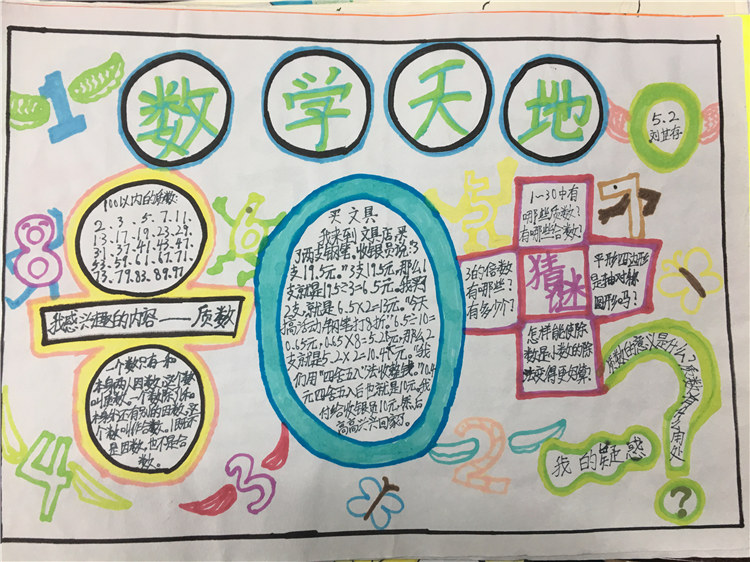 数学天地
5.2
刘甘存
100以内的质数:
2. 3. 5. 7. 11.
13. 17. 19. 23. 29.
31. 37. 41. 43. 47.
53. 59. 61. 67. 71.
73. 79. 83. 89. 97
我感兴趣的内容——质数
一个数只有一和
本身两个因数,这个数
叫质数。一个数除了1和
本身还有别的因数,这
个数叫作合数。1既不
是质数,也不是合
数。
买文具
我来到文具店,买
了两支钢笔。收银员说:“3
支19.5元。”3支19.5元,那么1
支就是19.5÷3=6.5元。我买
2支,就是6.5×2=13元。“今天
搞活动,钢笔打8折。”6.5÷10=
0.65元,0.65×8=5.2元,那么2
支就是5.2×2=10.4元。“我
们用“四舍五入”法收整钱。”10.4
元四舍五入后也就是10元。我
付给收银员10元,然后
高高兴兴回家了。
1~30中有
哪些质数?
有哪些合数?
36的倍数
有哪些?
有多少个?
猜谜
平行四边形
是轴对称
图形吗?
怎样能使除
数是小数的除
法变得更简算?
质数的意义是什么?质数有什么用处
?
我的疑惑
1
8
6
5
7
4
3
2